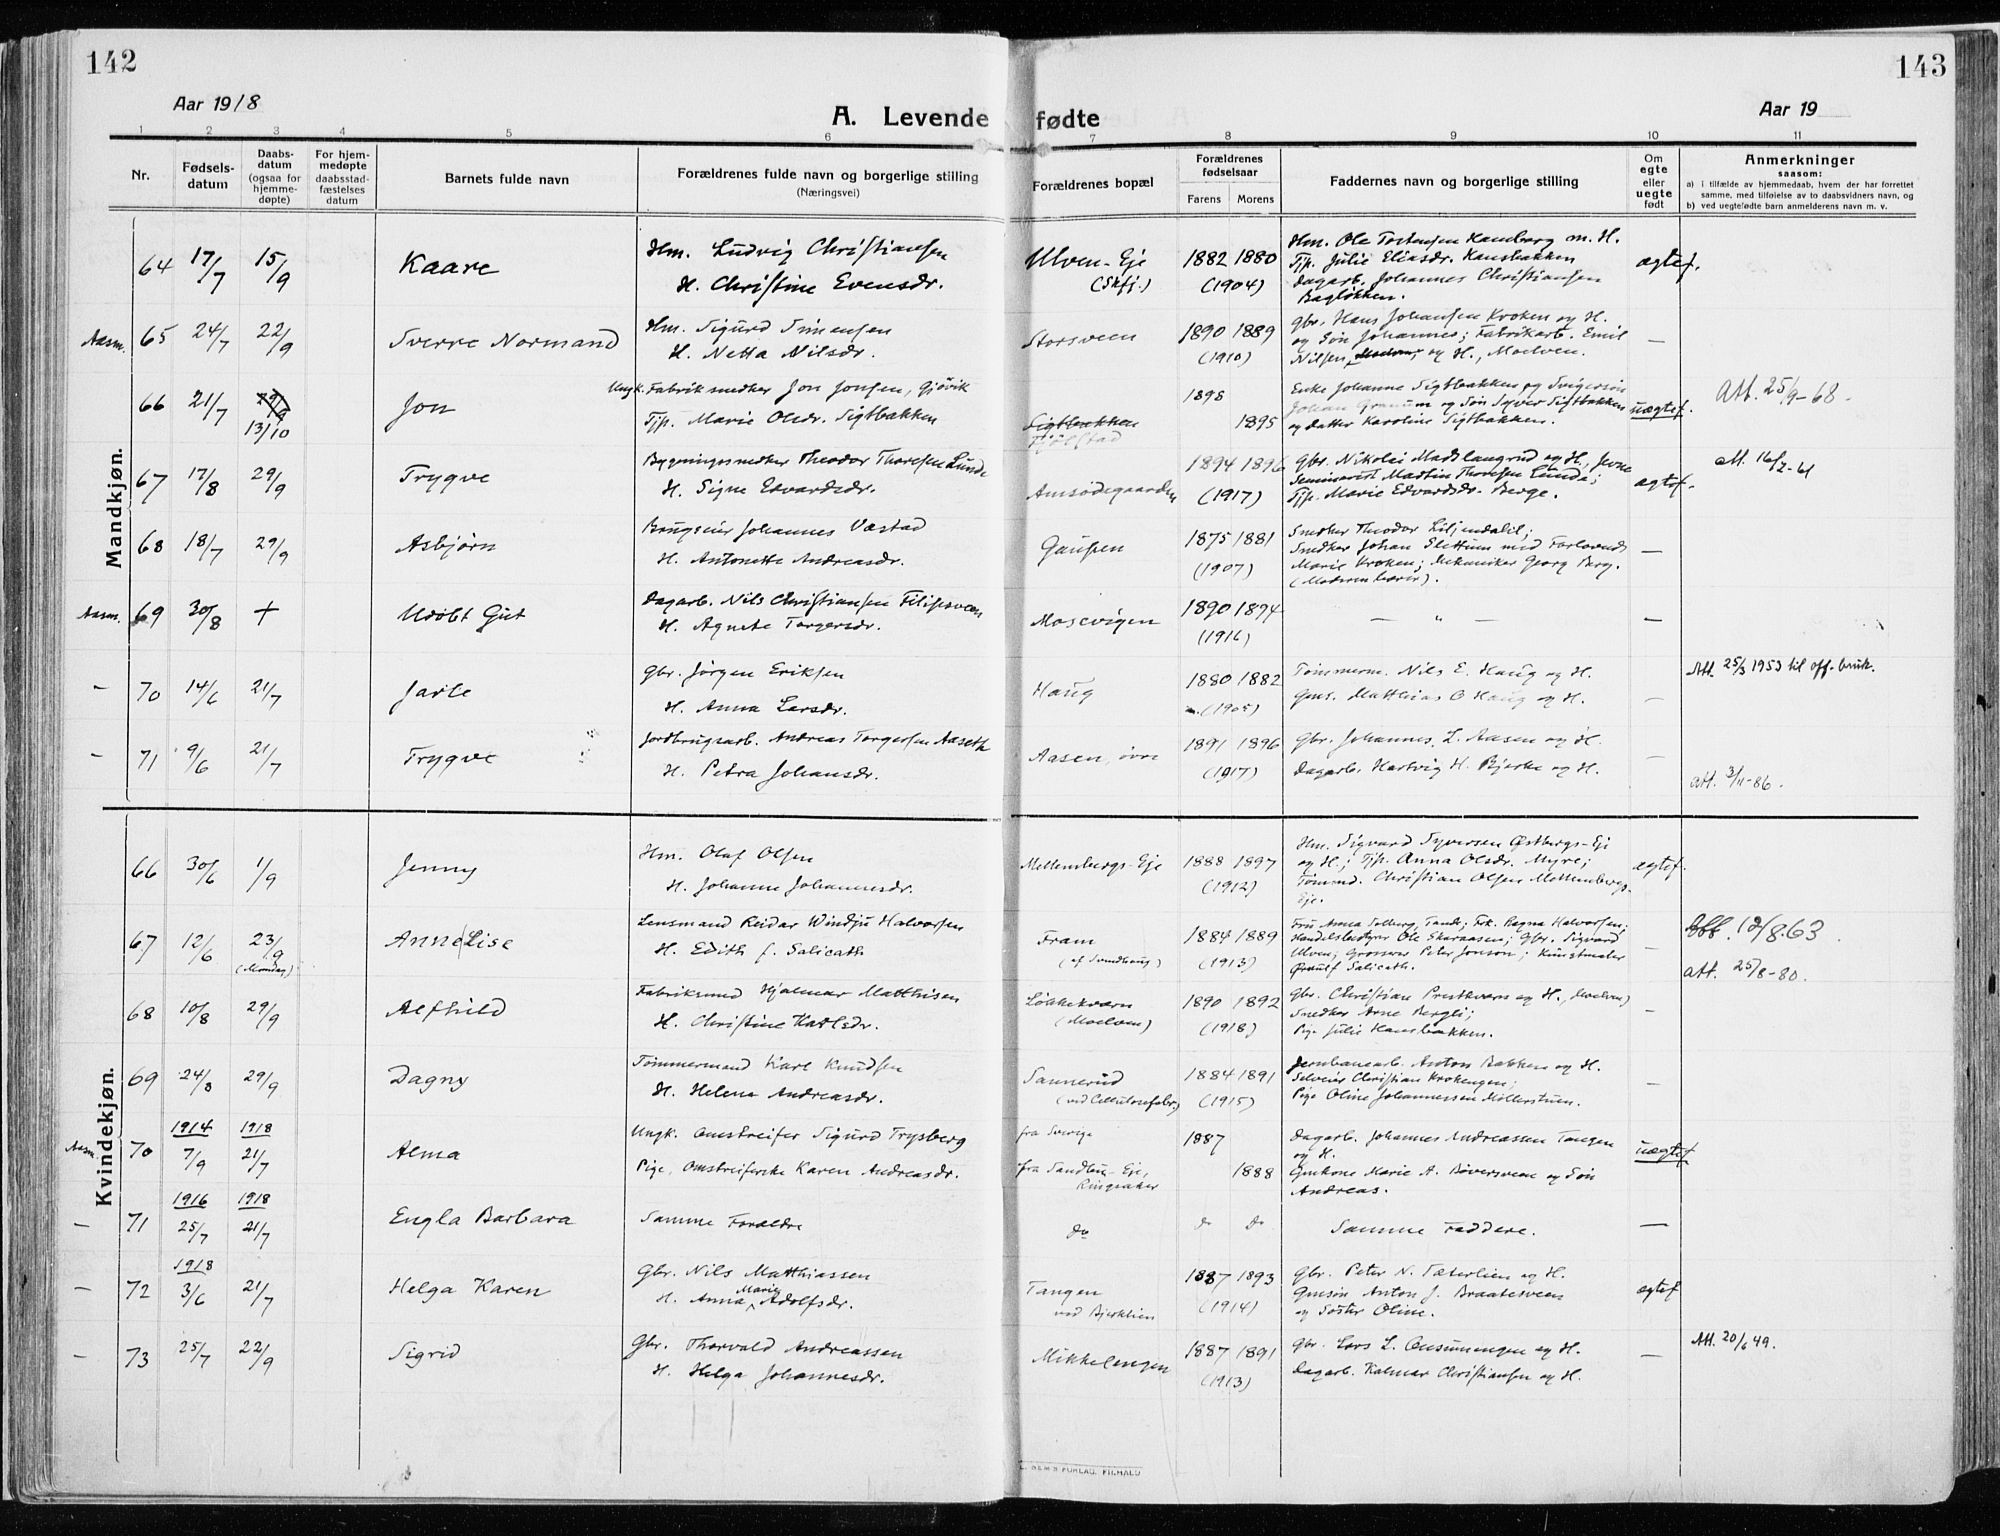 142
143
Aar 1918
A. Levende fødte
Aar 19
1 2 3 4 5 6 7 8 9 10 11
Nr.
Fødsels-
datum
Daabs-
datum
(ogsaa for
hjemme-
døpte)
For hjem-
medøpte
daabsstad-
fæstelses
datum
Barnets fulde navn
Forældrenes fulde navn og borgerlige stilling
(Næringsvei)
Forældrenes bopæl
Forældrenes
fødselsaar
Farens Morens
Faddernes navn og borgerlige stilling
Om
egte
eller
uegte
født
Anmerkninger
saasom:
a) i tilfælde av hjemmedaab, hvem der har forrettet
samme, med tilføielse av to daabsvidners navn, og
b) ved uegtefødte barn anmelderens navn m. v.
Mandkjøn.
64 17/7 15/9 Kaare
Hm. Ludvig Christiansen
H. Christine Evensdr.
Ulven-Eje
(Skfj.)
1882 1880
(1904)
Hm. Ole Tostensen Hamberg m. H.
Tjp. Julie Eliasdr. Hansbakken
Dagarb. Johannes Christiansen
Bagløkken.
ægtef.
Aasm. 65 24/7 22/9 Sverre Normand
Hm. Sigurd Simensen
H. Netta Nilsdr.
Storsveen
1890 1889
(1910)
Gbr. Hans Johansen Kroken og H.
og Søn Johannes; Fabrikarb. Emil
Nilsen, og H., Moelven.
—
66 21/7 29/9 13/10 Jon
Ungk. Fabriksnedker Jon Jonsen, Gjøvik
Tjp. Marie Olsdr. Sigtbakken
Sigtbakken
Fjølstad
1898
1895
Enke Johanne Sigtbakken og Svigersøn
Johan Granum og Søn Syver Sigtbakken
og datter Karoline Sigtbakken.
uægtef.
Att. 25/9-68.
67 17/8 29/9 Trygve
Bygningssnedker Theodor Thoresen Lunde
H. Signe Edvardsdr.
Amsødegaarden
1894 1896
(1917)
Gbr. Nikolai Madslangrud og H., Jevne
Seminarist Martin Thoresen Lunde;
Tjp. Marie Edvardsdr. Berge.
ægtef.
Att. 16/2-61
68 18/7 29/9 Asbjørn
Brugseier Johannes Væstad
H. Antonette Andreasdr.
Gaupen
1875 1881
(1907)
Snedker Theodor Liljendalil;
Snedker Johan Slettum med Forlovede
Marie Kroken; Mekaniker Georg Berg.
(Moderen bærer).
—
Aasm. 69 30/8 + Udøbt Gut
Dagarb. Nils Christiansen Filipsveen
H. Agnete Torgersdr.
Mosevigen
1890 1894
(1916)
— " —
—
— 70 14/6 21/7 Jarle
Gbr. Jørgen Eriksen
H. Anna Larsdr.
Haug
1880 1882
(1905)
Tømmerm. Nils E. Haug og H.
Gms. Matthias O Haug og H.
—
Att. 25/3 1953 til off. bruk.
— 71 9/6 21/7 Trygve
Jordbrugsarb. Andreas Torgersen Aaseth
H. Petra Johansdr.
Aasen, øvre
1891 1896
(1917)
Gbr. Johannes L. Aasen og H.
Dagarb. Hartvig H. Bjerke og H.
—
att. 3/11-86.
Kvindekjøn.
66 30/6 1/9 Jenny
Hm. Olaf Olsen
H. Johanne Johannesdr.
Mellembergs-Eje
1888 1897
(1912)
Hm. Sigvard Syversen Østbergs-Eje
og H.; Tjp. Anna Olsdr. Myre;
Tømmd. Christian Olsen Mellembergs-
Eje.
ægtef.
67 12/6 23/9 (Mandag) Anne Lise
Lensmand Reidar Windju Halvorsen
H. Edith f. Salicath
Fram
(af Sundhaug)
1884 1889
(1913)
Fru Anna Solberg, Tande; Frk. Ragna Halvorsen;
Handelsbestyrer Ole Skaraasen; Gbr. Sigvard
Ulven; Grosserer Peter Jonson; Kunstmaler
Ørnulf Salicath.
—
Att. 12/8.63
att. 25/8-80.
68 10/8 29/9 Alfhild
Fabriksmed Hjalmar Matthisen
H. Christine Karlsdr.
Løkkekværn
(Moelven)
1890 1892
(1918)
Gbr. Christian Prestkværn og H., Moelven)
Snedker Arne Bergli;
Pige Julie Hansbakken.
—
69 24/8 29/9 Dagny
Tømmermand Karl Knudsen
H. Helena Andreasdr.
Sannerud
(ved Cellulosefabr.)
1884 1891
(1915)
Jernbanearb. Anton Bakken og H.
Selveier Christian Krokengen;
Pige Oline Johannessen Møllerstuen.
—
Aasm. 70 1914 7/9 1918 21/7 Alma
Ungk. Omstreifer Sigurd Trysberg
Pige, Omstreiferske Karen Andreasdr.
fra Sverige
fra Sandbu-Eje,
Ringsaker
1887
1888
Dagarb. Johannes Andreassen Tangen
og H.
Gmkone Marie A. Bøversveen og Søn
Andreas.
uægtef
— 71 1916 25/7 1918 21/7 Engla Barbara
Samme Forældre
do
do do
Samme Faddere.
—
— 72 1918 3/6 21/7 Helga Karen
Gbr. Nils Matthiassen
H. Anna Marie Adolfsdr.
Tangen
ved Bjerklien
1887 1893
(1914)
Gbr. Peter N. Tæterlien og H.
Gmsøn Anton J. Braatesveen
og Søster Oline.
ægtef
— 73 25/7 22/9 Sigrid
Gbr. Thorvald Andreassen
H. Helga Johannesdr.
Mikkelengen
1887 1891
(1913)
Gbr. Lars L. Amsumengen og H.
Dagarb. Kalmar Christiansen og H.
—
Att. 20/6 49.